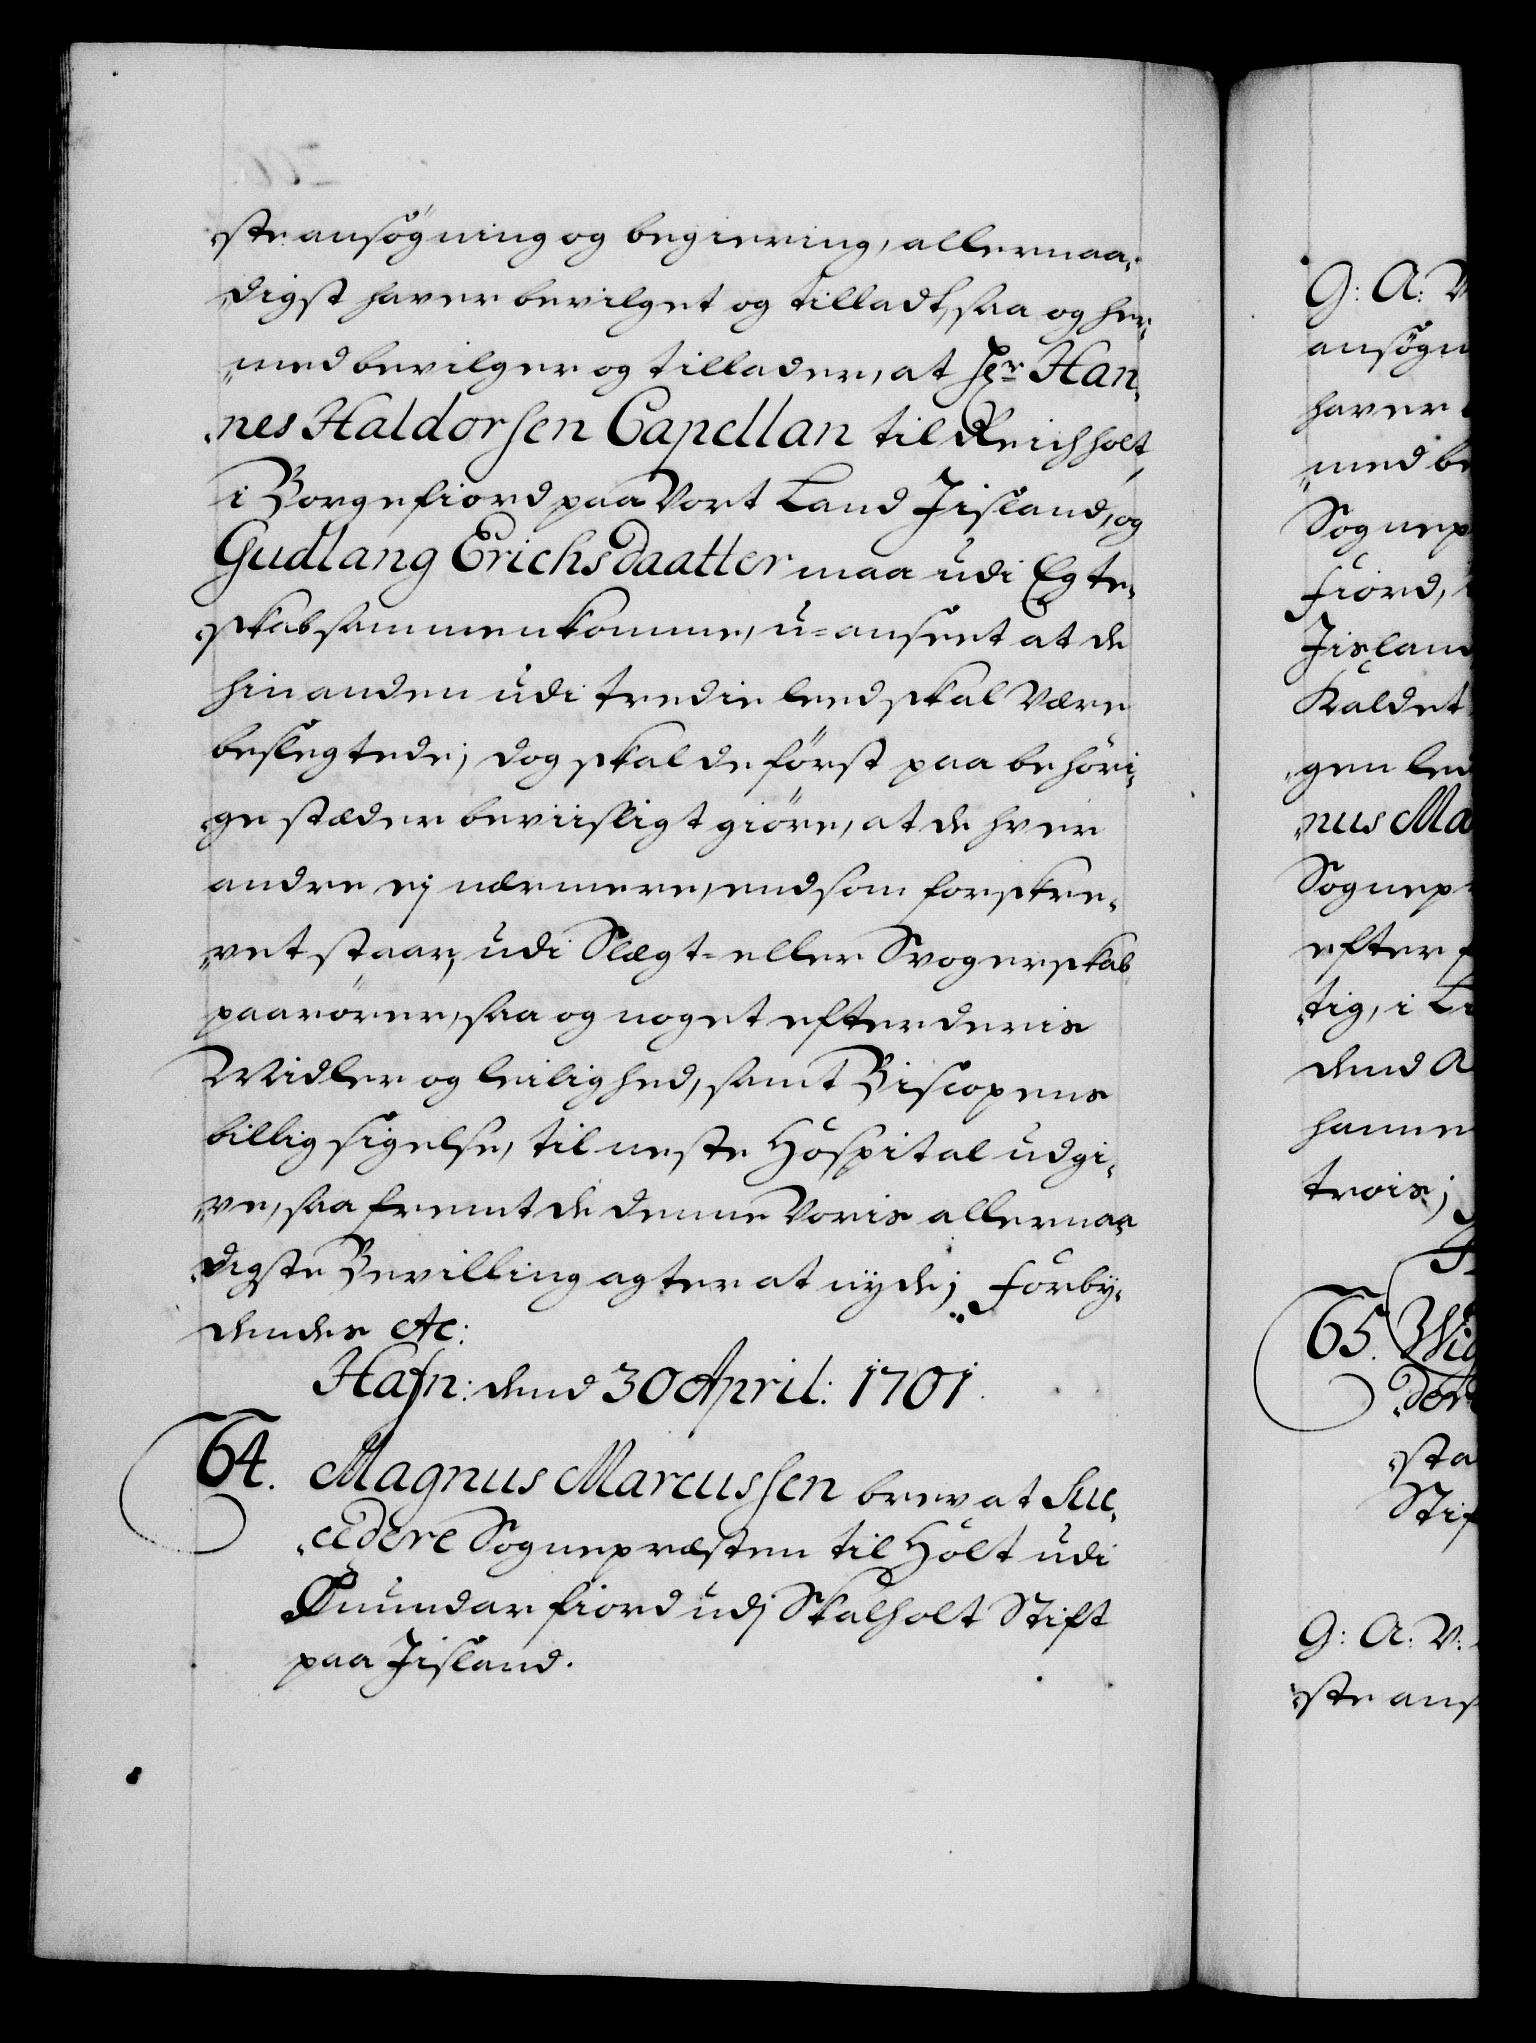 ste ansögning og begiering, allernaa„
„digst hafver bevilget og tilladt, saa og her„
„med bevilger og tillader, at Hr Han„
„nes Haldorsen Capellan til Reichholt
i Borgefiord paa Vort Land Jisland, og
Gudlang Erichsdaatter maa udi Egte„
„skab sammenkomme, u-anseet at de
hinanden udi tredie leed skal være
beslegtede; dog skal de först paa behöri„
„ge stæder beviisligt giöre, at de hver
andre ej nærmere, end som forskre„
„vet staar, udi Slegt- eller Svogerskab
paarörer, saa og noget efter deris
Midler og leilighed, samt Biscopens
billig sigelse, til neste Hospital udgi„
„ve, saafremt de denne Voris allernaa„
„digste Bevilling agter at nyde; Forby„
dendes etc:
Hafn: dend 30 April: 1701.
64. Magnus Marcussen brev at Suc„
„cedere Sognepræsten til Holt udi
Onundar fiord udj Skalholt Stift
paa Jisland.
G: A: V
ansögn
hafver
„med be
Sognep
Fiord,
Jisland
Kaldet
„gen led
„nus Ma
Sognep
efter
„tig, i Li
dend A
hanne
trois;
65. Wig
„dor
sta
Stif
G: A: V:
„ste ans